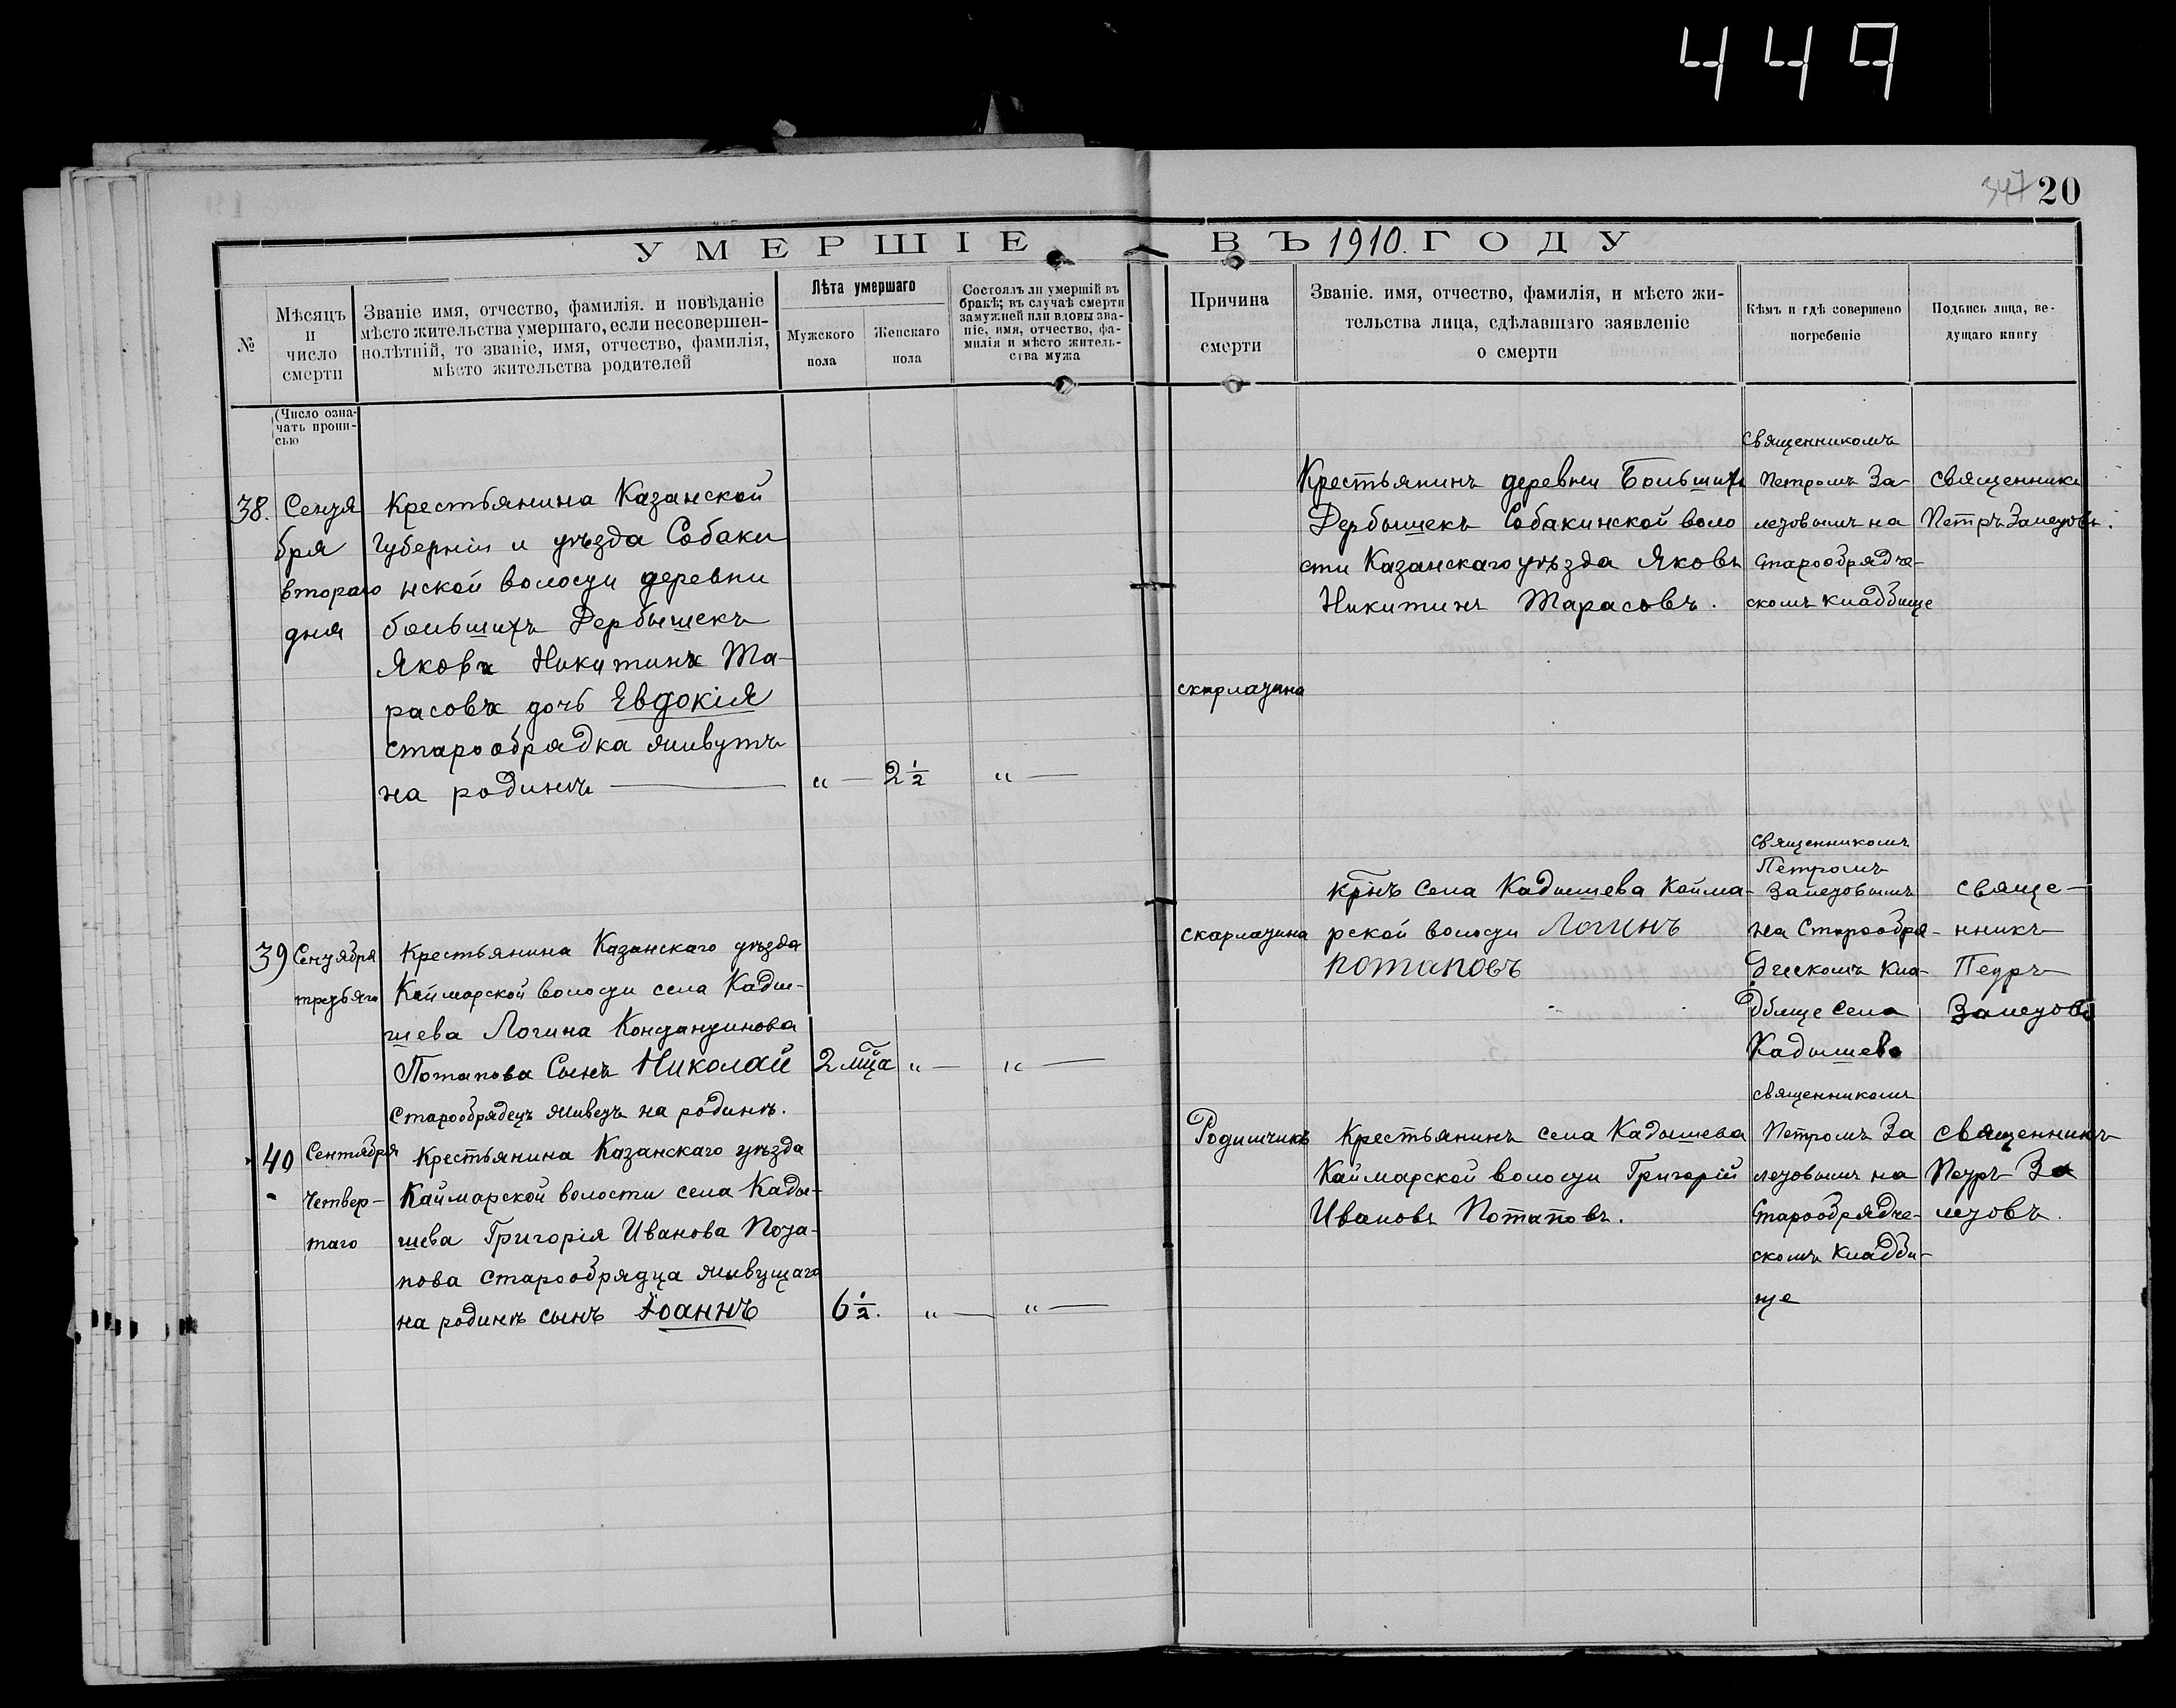 449
347 20
УМЕРШІЕ ВЪ 1910. ГОДУ
№
Мѣсяцъ
и
число
смерти
Званіе имя, отчество, фамилія. и повѣданіе
мѣсто жительства умершаго, если несовершен-
нолѣтній, то званіе, имя, отчество, фамилія,
мѣсто жительства родителей
Лѣта умершаго
Мужского
пола
Женскаго
пола
Состоялъ ли умершій въ
бракѣ; въ случаѣ смерти
замужней или вдовы зва-
ніе, имя, отчество, фа-
милія и мѣсто житель-
ства мужа
Причина
смерти
Званіе. имя, отчество, фамилія, и мѣсто жи-
тельства лица, сдѣлавшаго заявленіе
о смерти
Кѣмъ и гдѣ совершено
погребеніе
Подпись лица, ве-
дущаго книгу
(Число озна-
чать прони-
сью
38.
Сентя
бря
втораго
дня
Крестьянина Казанской
Губерніи и уѣзда Собаки
нской волости деревни
большихъ Дербышекъ
Якова Никитина Та-
расова дочь Евдокія
старообрядка живутъ
на родинѣ
" — 2 1/2 " —
скарлатина
Крестьянинъ деревни Большихъ
Дербышекъ Собакинской воло
сти Казанскаго уѣзда Яковъ
Никитинъ Тарасовъ.
священникомъ
Петромъ За-
летовымъ на
Старообрядче-
скомъ кладбище
священникъ
Петръ Залетовъ.
39
Сентября
третьяго
Крестьянина Казанскаго уѣзда
Каймарской волости села Кады-
шева Логина Константинова
Потапова Сынъ Николай
Старообрядецъ живетъ на родинѣ.
2 мца " — " —
скарлатина
крнъ села Кадышева Кайма-
рской волости Логинъ
Потаповъ
священникомъ
Петромъ
Залетовымъ
на Старообря-
дческомъ кла-
дбище села
Кадышева
свяще-
нникъ
Петръ
Залетовъ
40
Сентября
Четвер-
таго
Крестьянина Казанскаго уѣзда
Каймарской волости села Кады-
шева Григорія Иванова Пота-
пова старообрядца живущаго
на родинѣ сынъ Іоаннъ
6 1/2. " — " —
Родимчикъ
Крестьянинъ села Кадышева
Каймарской волости Григорій
Ивановъ Потаповъ.
священникомъ
Петромъ За
летовымъ на
Старообрядче-
скомъ кладби-
ще
священникъ
Петръ За
летовъ.